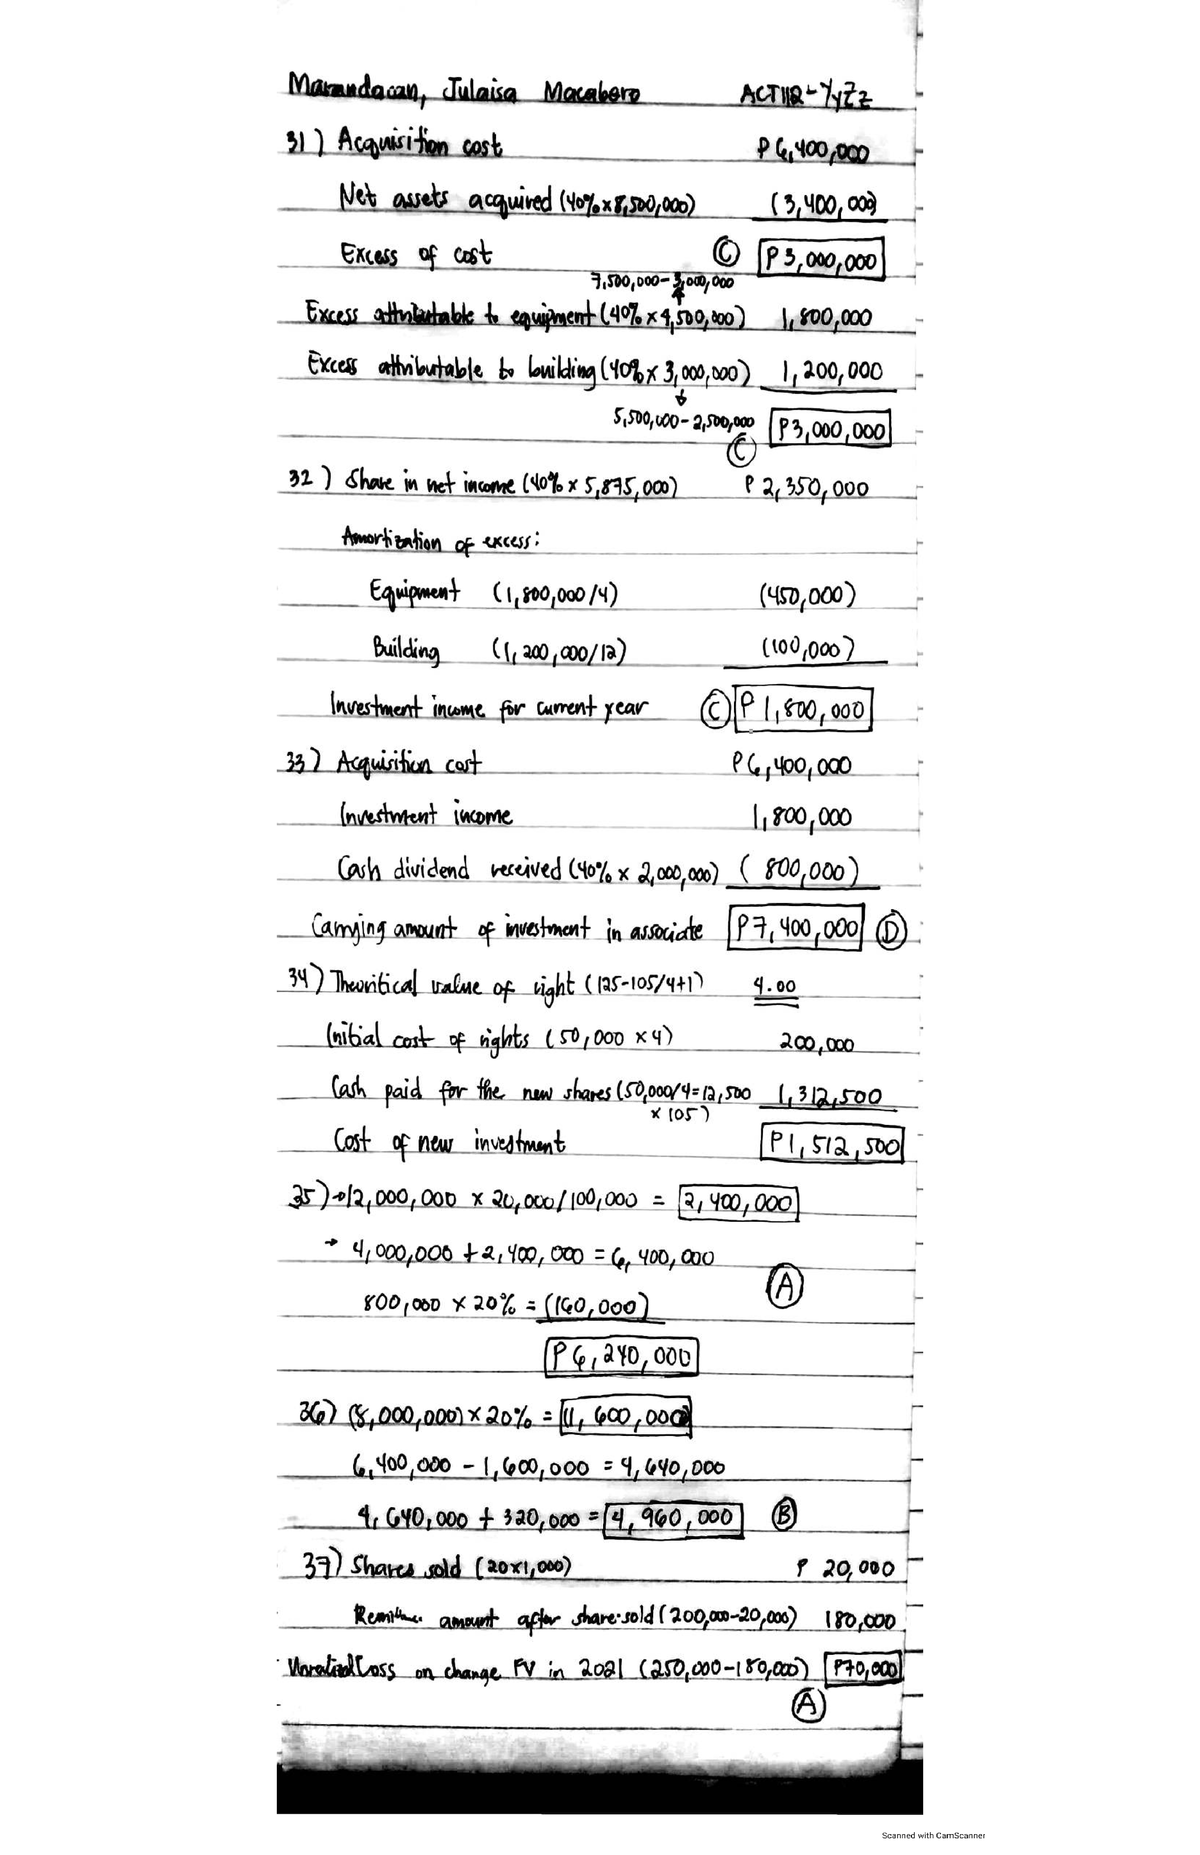 Marandacan, Julaisa Macabero ACT112-YyZz
31) Acquisition cost P6,400,000
Net assets acquired (40% x 8,500,000) (3,400,000)
Excess of cost C P3,000,000
7,500,000-3,000,000
Excess attributable to equipment (40% x 4,500,000) 1,800,000
Excess attributable to building (40% x 3,000,000) 1,200,000
5,500,000-2,500,000 P3,000,000
C
32) Share in net income (40% x 5,875,000) P2,350,000
Amortization of excess:
Equipment (1,800,000/4) (450,000)
Building (1,200,000/12) (100,000)
Investment income for current year C P1,800,000
33) Acquisition cost P6,400,000
Investment income 1,800,000
Cash dividend received (40% x 2,000,000) (800,000)
Carrying amount of investment in associate P7,400,000 D
34) Theoritical value of right (125-105/4+1) 4.00
Initial cost of rights (50,000 x 4) 200,000
Cash paid for the new shares (50,000/4=12,500 1,312,500
x 105)
Cost of new investment P1,512,500
35) → 12,000,000 x 20,000/100,000 = 2,400,000
→ 4,000,000 + 2,400,000 = 6,400,000
A
800,000 x 20% = (160,000)
P6,240,000
36) (8,000,000) x 20% = (1,600,000)
6,400,000 - 1,600,000 = 4,640,000
4,640,000 + 320,000 = 4,960,000 B
37) Shares sold (20x1,000) P 20,000
amount after share sold (200,000-20,000) 180,000
Unrealized Loss on change FV in 2021 (250,000-180,000) P70,000
A
Scanned with CamScanner